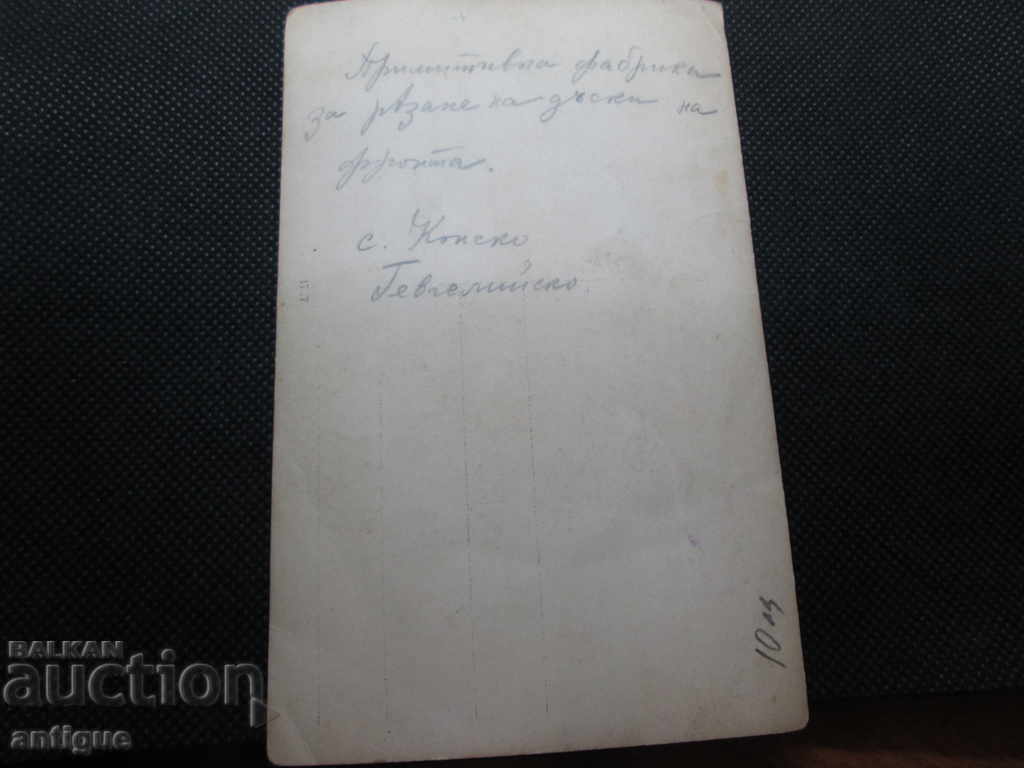 Примитивна фабрика
за рѣзане на дъски на
фронта.
с. Конско
Гевгелийско.
10 лв
BALKAN
auction
antique